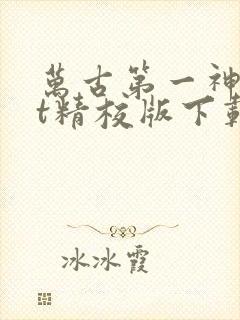 萬古第一神
t精校版下載
冰冰霞